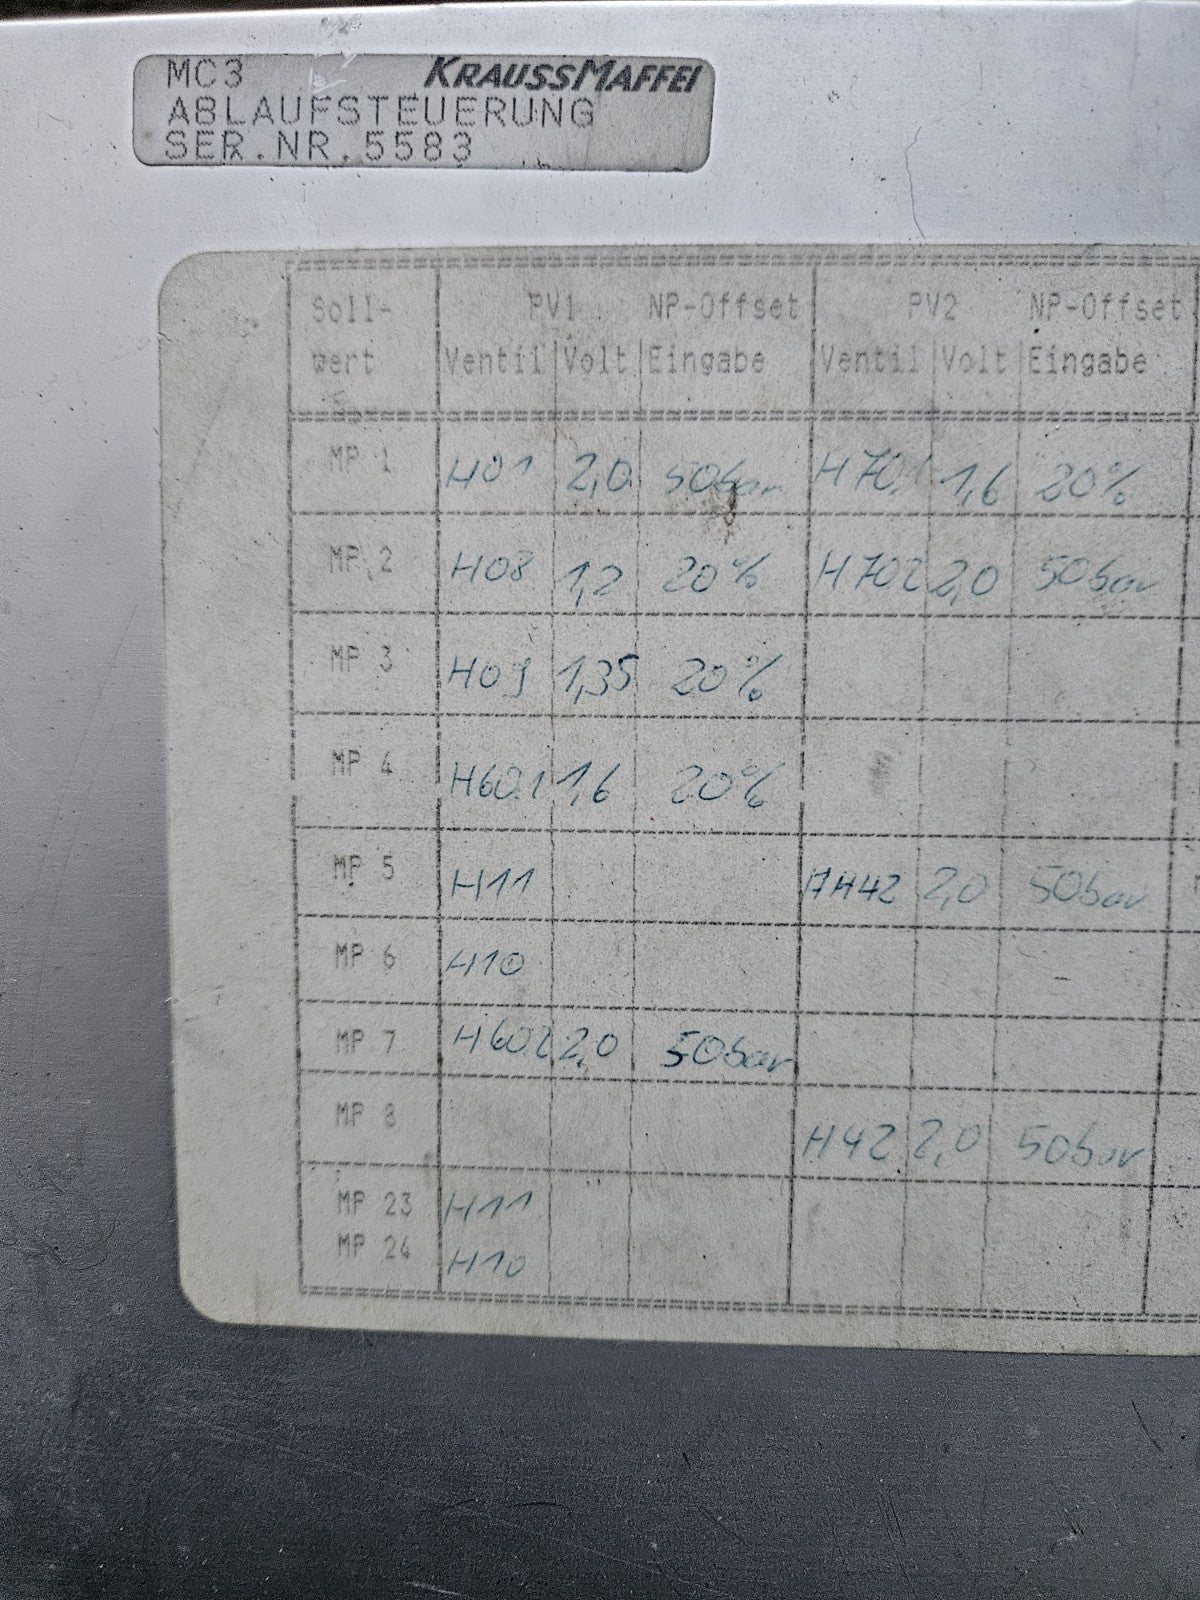 MC3 KRAUSSMAFFEI
ABLAUFSTEUERUNG
SER.NR.5583
Soll- PV1 NP-Offset PV2 NP-Offset
wert Ventil Volt Eingabe Ventil Volt Eingabe
MP 1 H01 2,0 50bar H70.1 1,6 20%
MP 2 H08 1,2 20% H702 2,0 50bar
MP 3 H09 1,35 20%
MP 4 H60.1 1,6 20%
MP 5 H11 H42 2,0 50bar
MP 6 H10
MP 7 H602 2,0 50bar
MP 8 H42 2,0 50bar
MP 23 H11
MP 24 H10